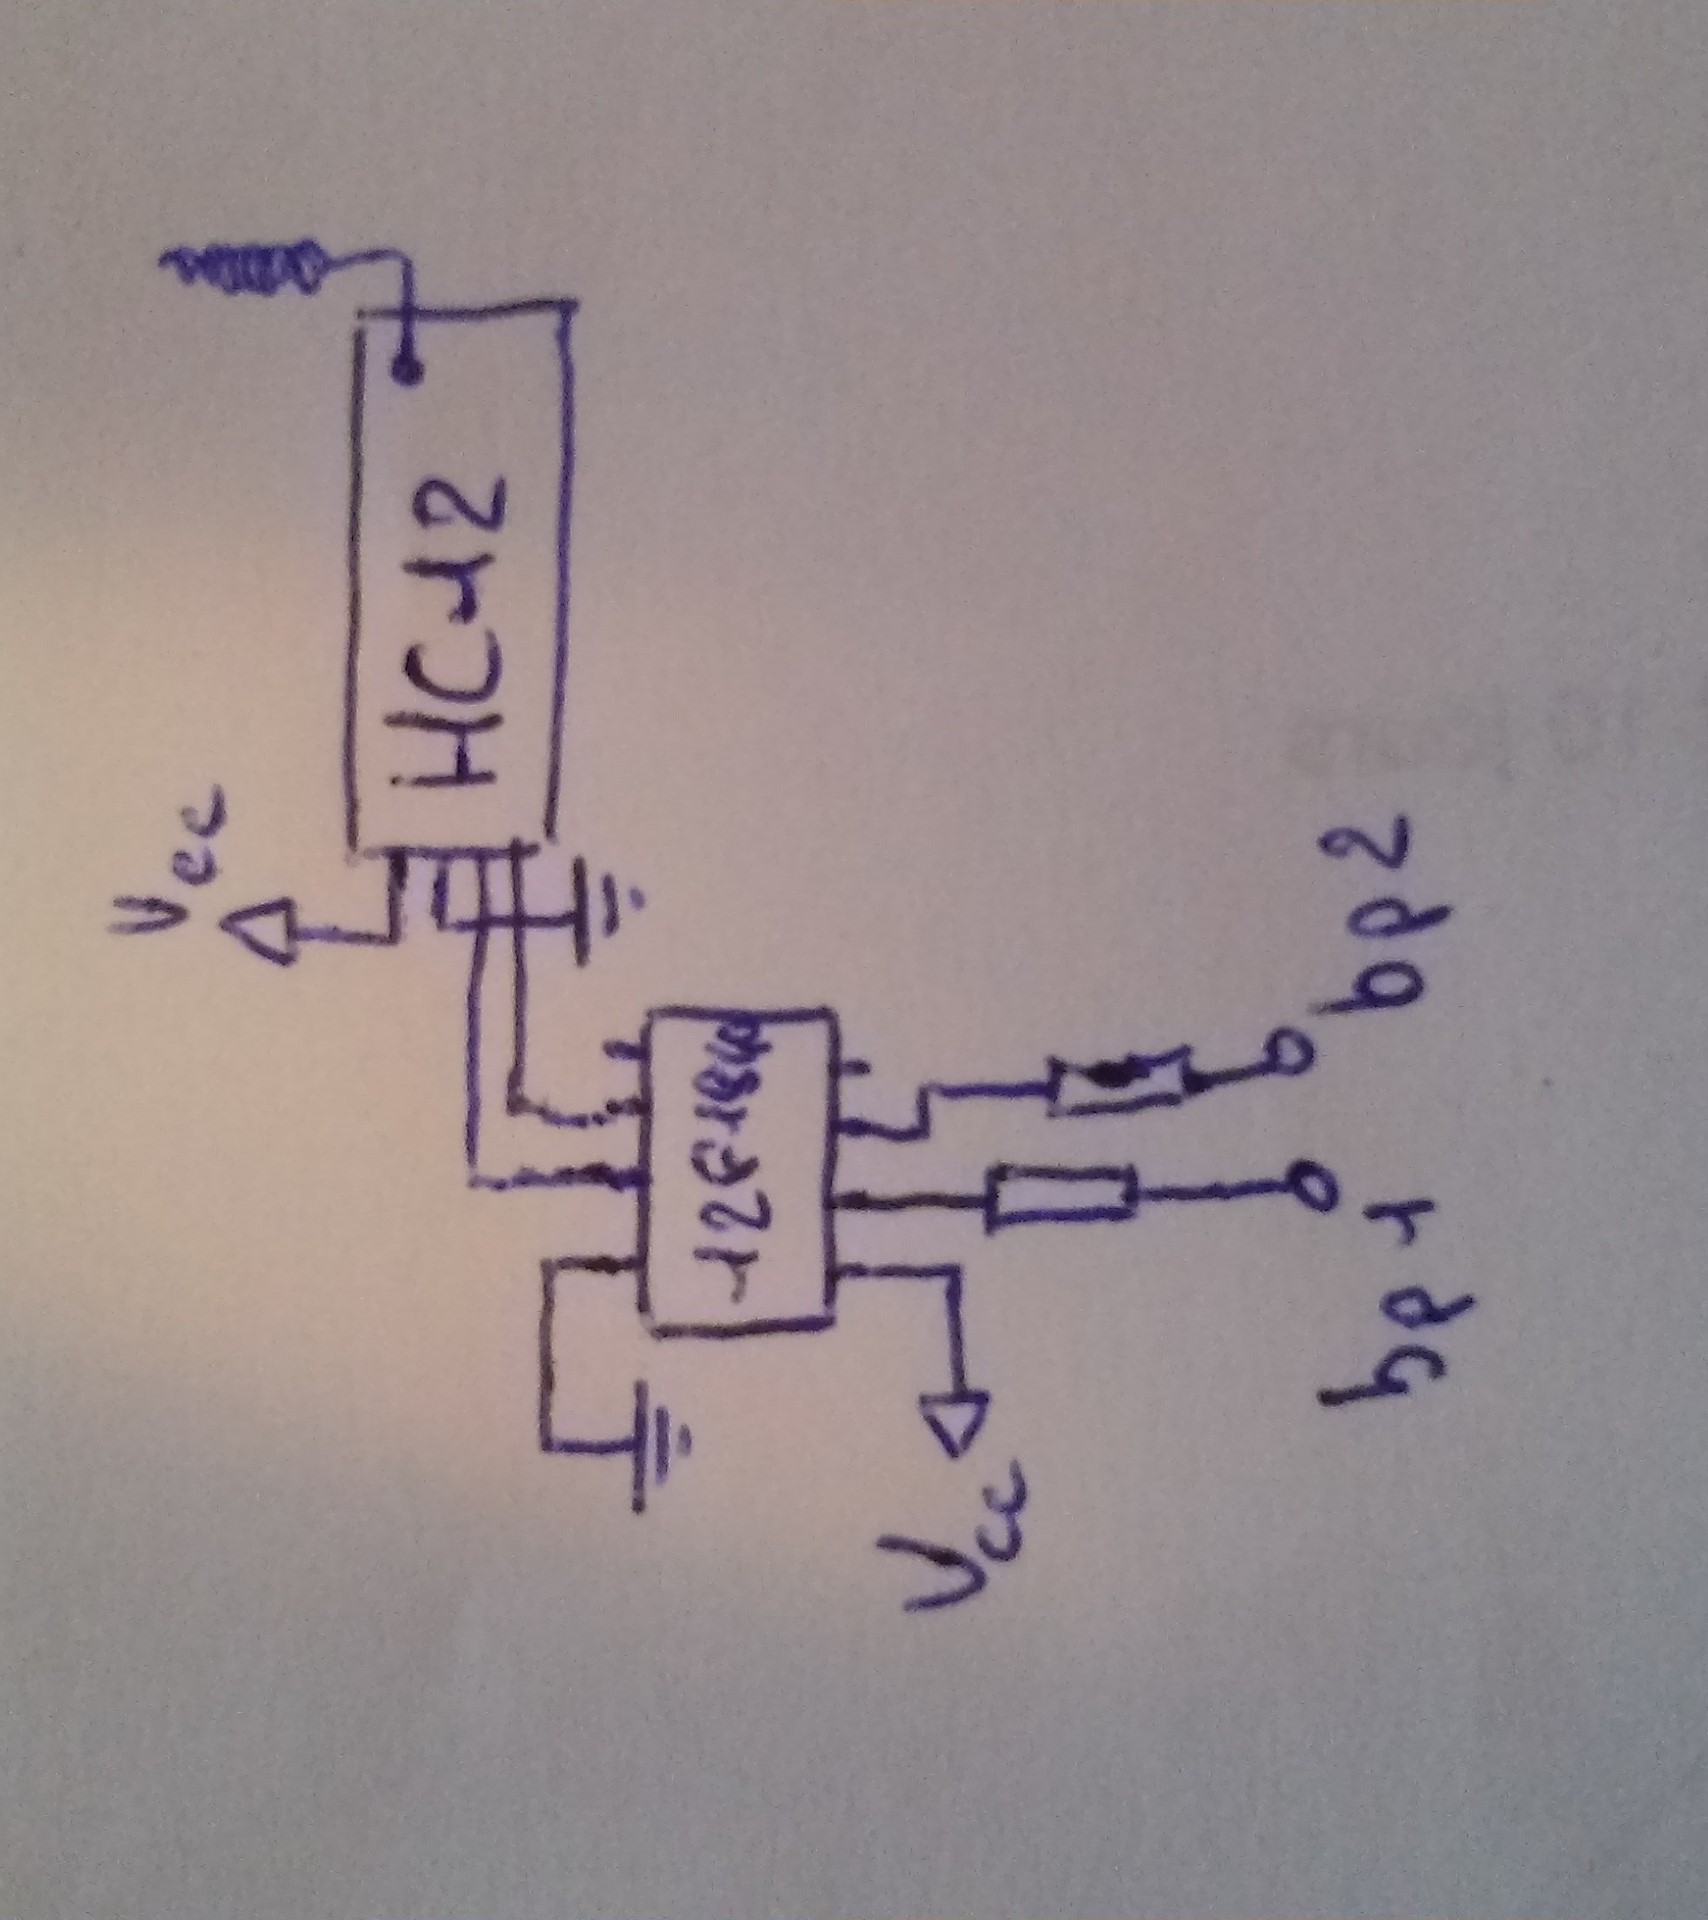 Vcc
HC12
12F1840
Vcc
bp1
bp2